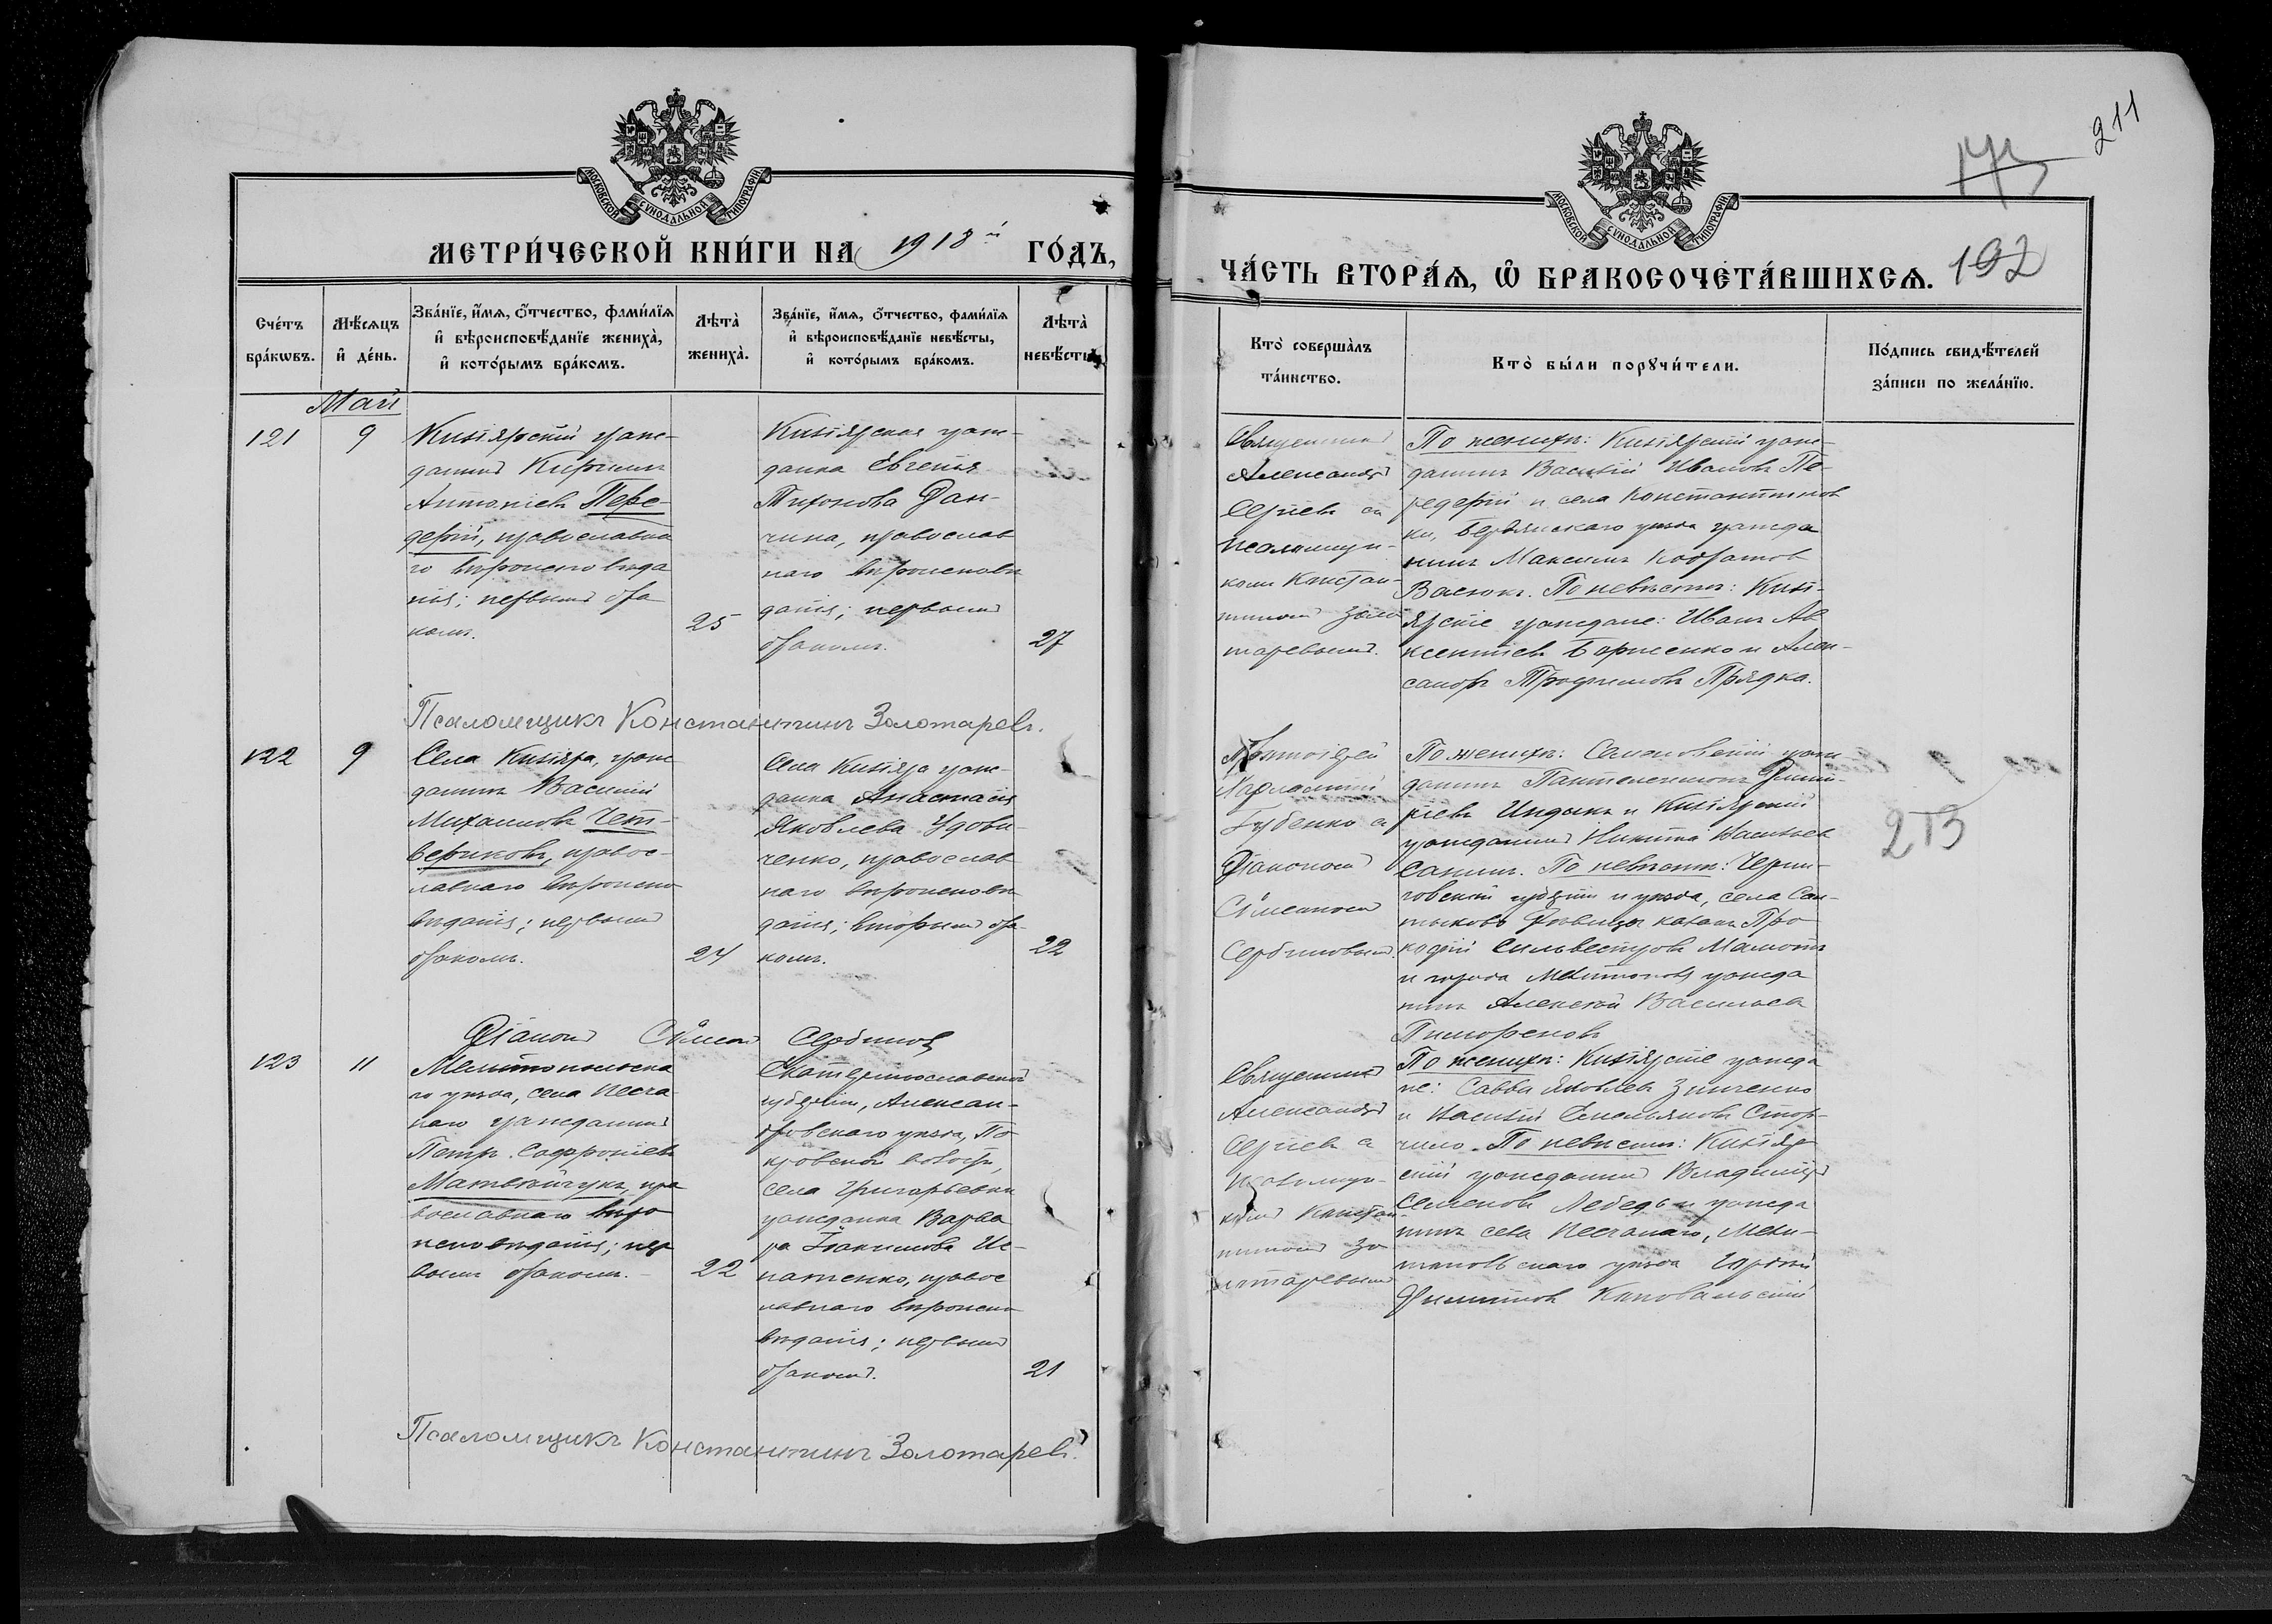 МОСКОВСКОЙ СѴНОДАЛЬНОЙ ТИПОГРАФІИ
МЕТРИ́ЧЕСКОЙ КНИ́ГИ НА 1918й ГО́ДЪ,
Сче́тъ бра́кѡвъ.
Мѣ́сяцъ и҆ де́нь.
Зва́нїе, и҆́мѧ, ѻ҆́тчество, фами́лїѧ и҆ вѣроисповѣ́данїе жениха̀, и҆ кото́рымъ бра́комъ.
Лѣта̀ жениха̀.
Зва́нїе, и҆́мѧ, ѻ҆́тчество, фами́лїѧ и҆ вѣроисповѣ́данїе невѣ́сты, и҆ кото́рымъ бра́комъ.
Лѣта̀ невѣ́сты.
Май
121
9
Кизіярскій граж-
данинъ Кириллъ
Антоніевъ Пере-
дерій, православна
го вѣроисповѣда
нія; первымъ бра
комъ.
25
Кизіярская граж-
данка Евгенія
Тихонова Дан-
чина, православ
наго вѣроисповѣ
данія; первымъ
бракомъ.
27
Псаломщикъ Константинъ Золотаревъ.
122
9
Села Кизіяра, граж
данинъ Василій
Михаиловъ Чет-
вериковъ, правос-
лавнаго вѣроиспо
вѣданія; первымъ
бракомъ.
24
Села Кизіяра граж-
данка Анастасія
Яковлева Удови-
ченко, православ
наго вѣроисповѣ
данія; вторымъ бра-
комъ.
22
Діаконъ Сѵмеонъ Сербиновъ
123
11
Мелитопольска
го уѣзда, села Песча
наго гражданинъ
Петръ Софроніевъ
Матвейчукъ, пра
вославнаго вѣро
исповѣданія; пер
вымъ бракомъ.
22
Екатеринославской
губерніи, Алексан-
дровскаго уѣзда, По
кровской волости,
села Григорьевки
гражданка Варва
ра Іоакимова Иг-
натенко, правос
лавнаго вѣроиспо
вѣданія; первымъ
бракомъ.
21
Псаломщикъ Константинъ Золотаревъ.
211
МОСКОВСКОЙ СѴНОДАЛЬНОЙ ТИПОГРАФІИ
ЧА́СТЬ ВТОРА́Ѧ, Ѡ҆ БРАКОСОЧЕТА́ВШИХСѦ.
192
Кто̀ соверша́лъ та́инство.
Кто̀ бы́ли порꙋчи́тели.
По́дпись свидѣ́телей за́писи по жела́нїю.
Священникъ
Александръ
Сергіевъ съ
псаломщи-
комъ Констан-
тиномъ Золо
таревымъ.
По женихѣ: Кизіярскій граж-
данинъ Василій Ивановъ Пе-
редерій и села Константинов
ки, Бердянскаго уѣзда гражда
нинъ Максимъ Кодратовъ
Васюкъ. По невѣстѣ: Кизі-
ярскіе граждане: Иванъ Ав
ксентіевъ Борисенко и Алек-
сандръ Трофимовъ Прядка.
Протоіерей
Харлампій
Губенко съ
Діакономъ
Сѵмеономъ
Сербиновымъ.
По женихѣ: граж
данинъ Пантелеимонъ Дмит-
ріевъ Индыкъ и Кизіярскій
гражданинъ Никита Васильев
Санинъ. По невѣстѣ: Черни-
говской губерніи и уѣзда, села Сал-
тыковой Дѣвицы казакъ Про
кофій Сильвестровъ Мамонтъ
и города Мелитополя гражда
нинъ Алексѣй Васильевъ
213
Священникъ
Александръ
Сергіевъ съ
псаломщи-
комъ Констан-
тиномъ Зо
лотаревымъ
По женихѣ: Кизіярскіе гражда
не: Савва Яковлевъ Зинченко
и Василій Емельяновъ Стор-
чило. По невѣстѣ: Кизіяр
скій гражданинъ Владиміръ
Семеновъ Лебедь и гражда
нинъ села Песчанаго, Мели-
топольскаго уѣзда Гордѣй
Филипповъ Коновальскій